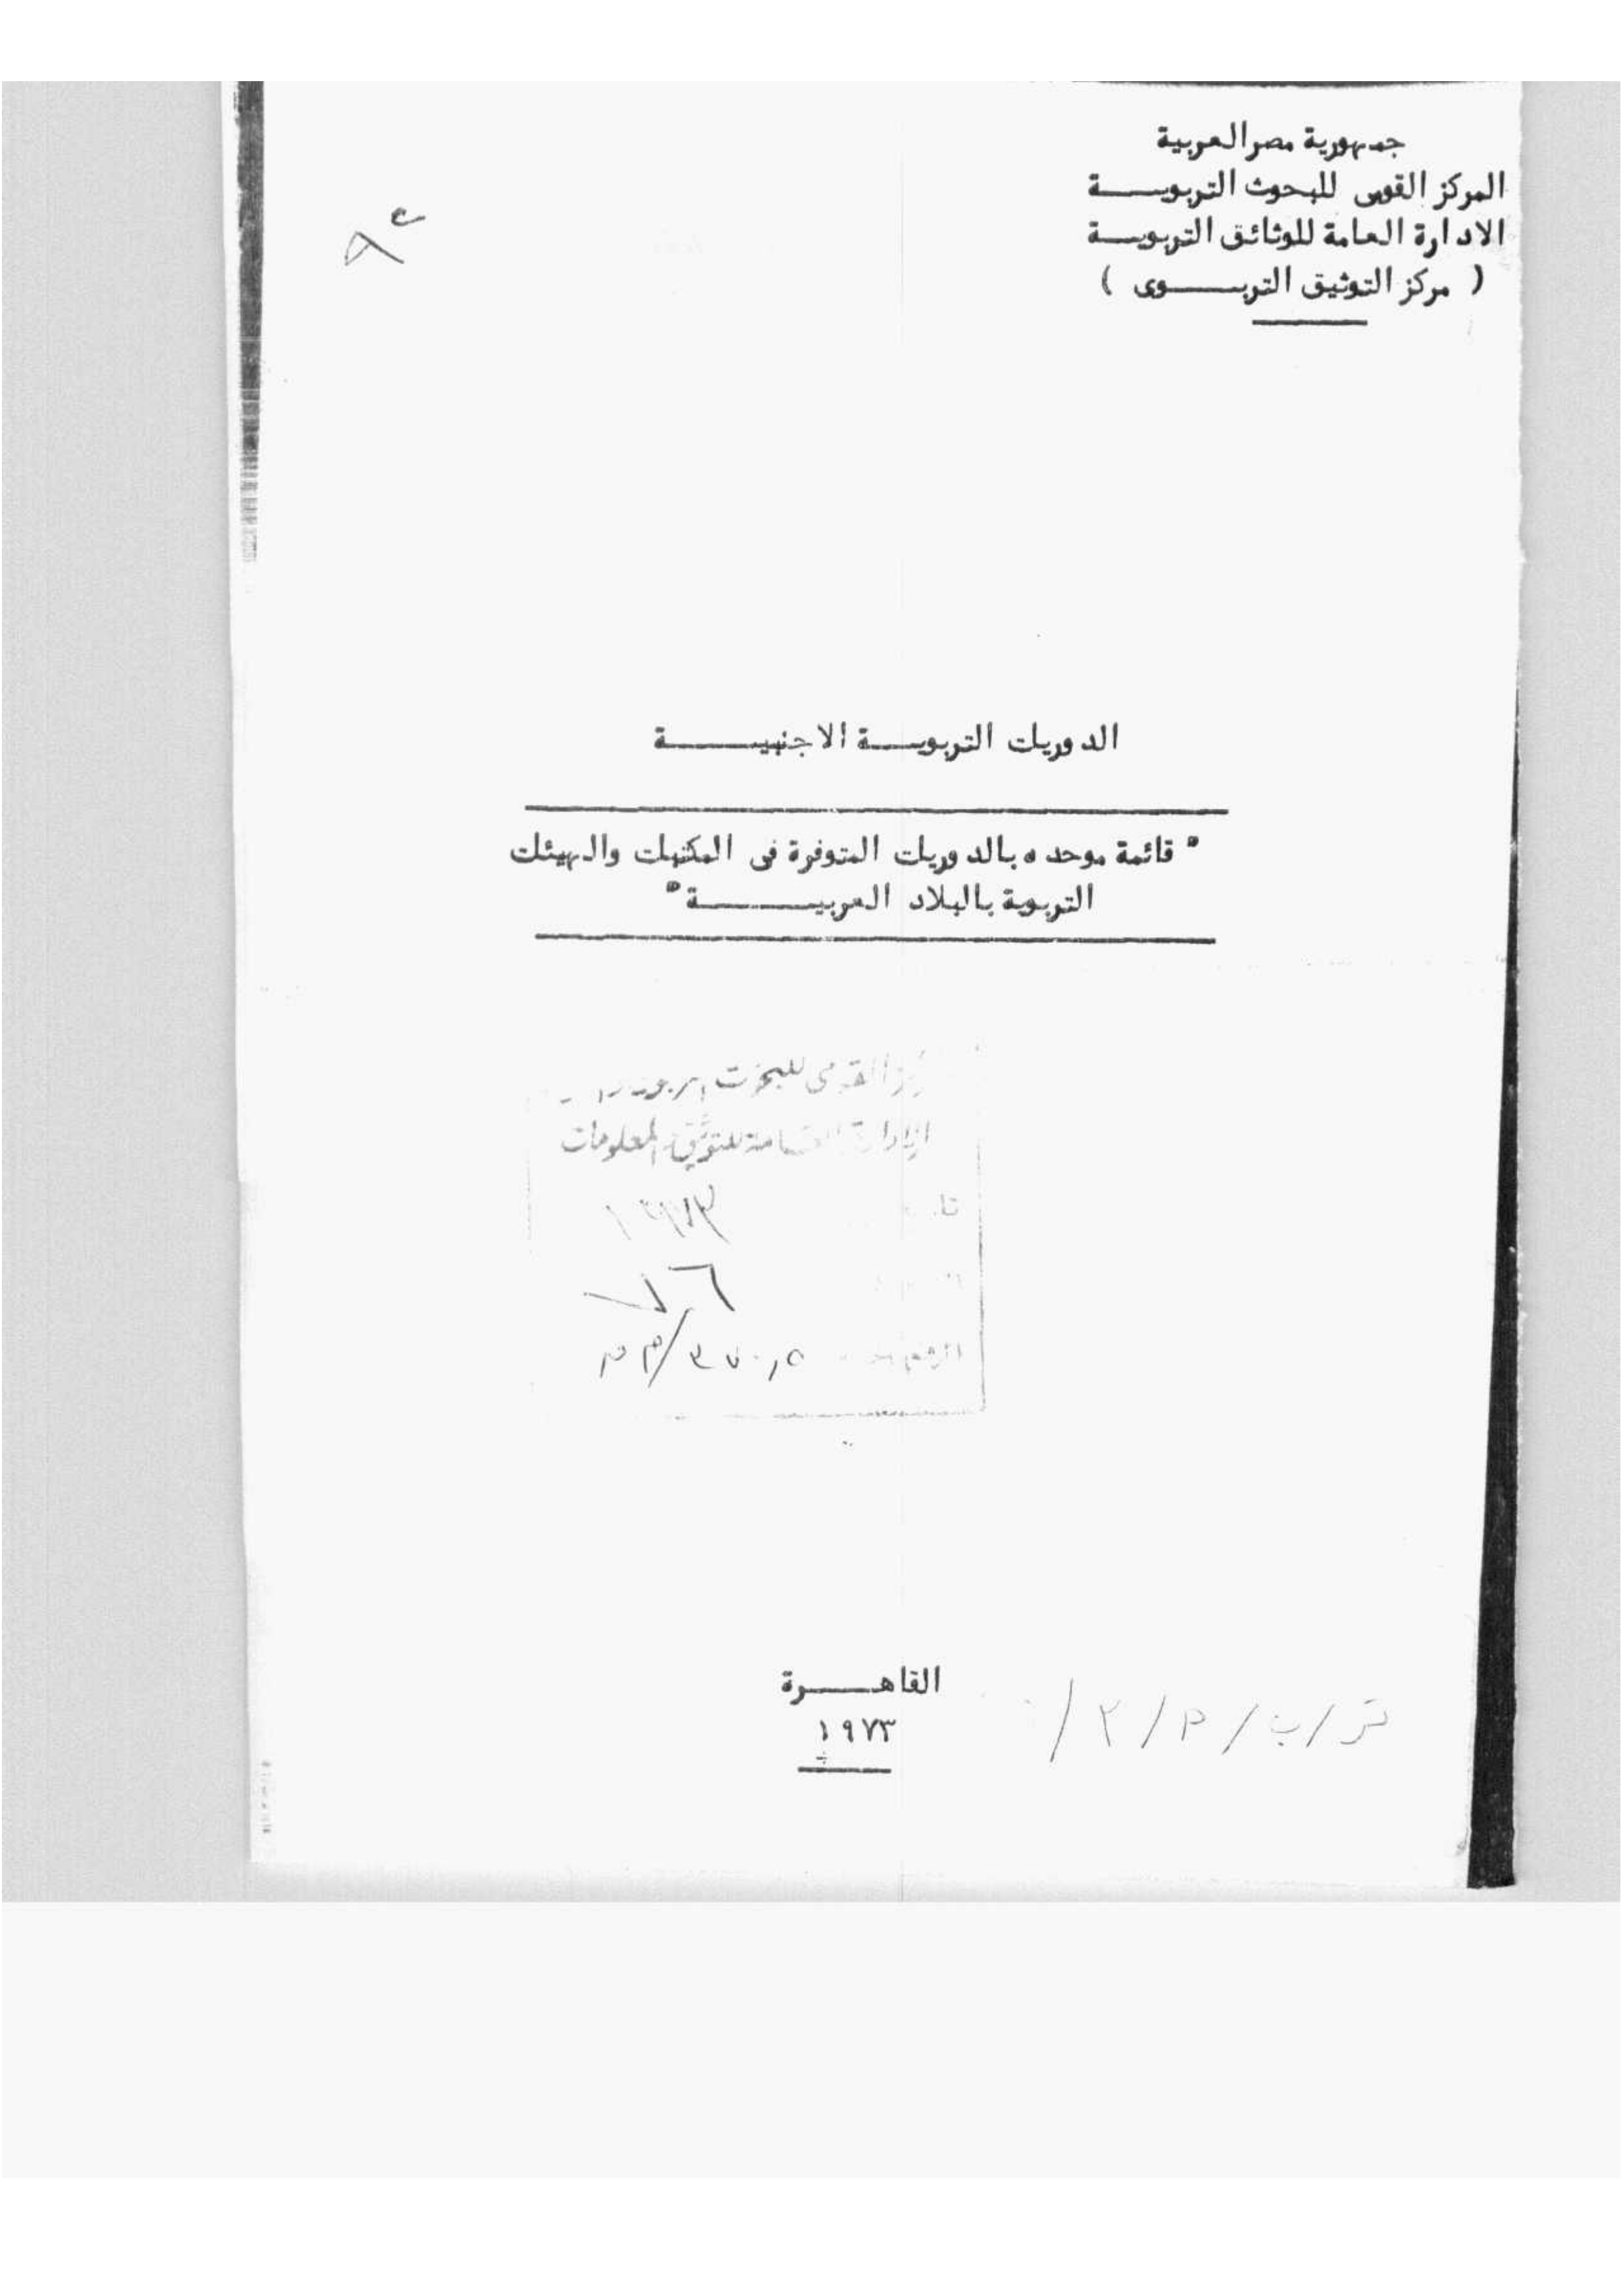 جمهورية مصر العربية
المركز القومى للبحوث التربويـــة
الادارة العامة للوثائق التربويـــة
( مركز التوثيق التربـــوى )
الدوريات التربويـــة الاجنبيـــة
" قائمة موحده بالدوريات المتوفرة فى المكتبات والهيئات
التربوية بالبلاد العربيـــة "
القومى للبحوث
الإدارة العامة للتوثيق والمعلومات
١٩٧٣
٣٧٠,٥
القاهـــرة
١٩٧٣
تر/ب/م/٢/